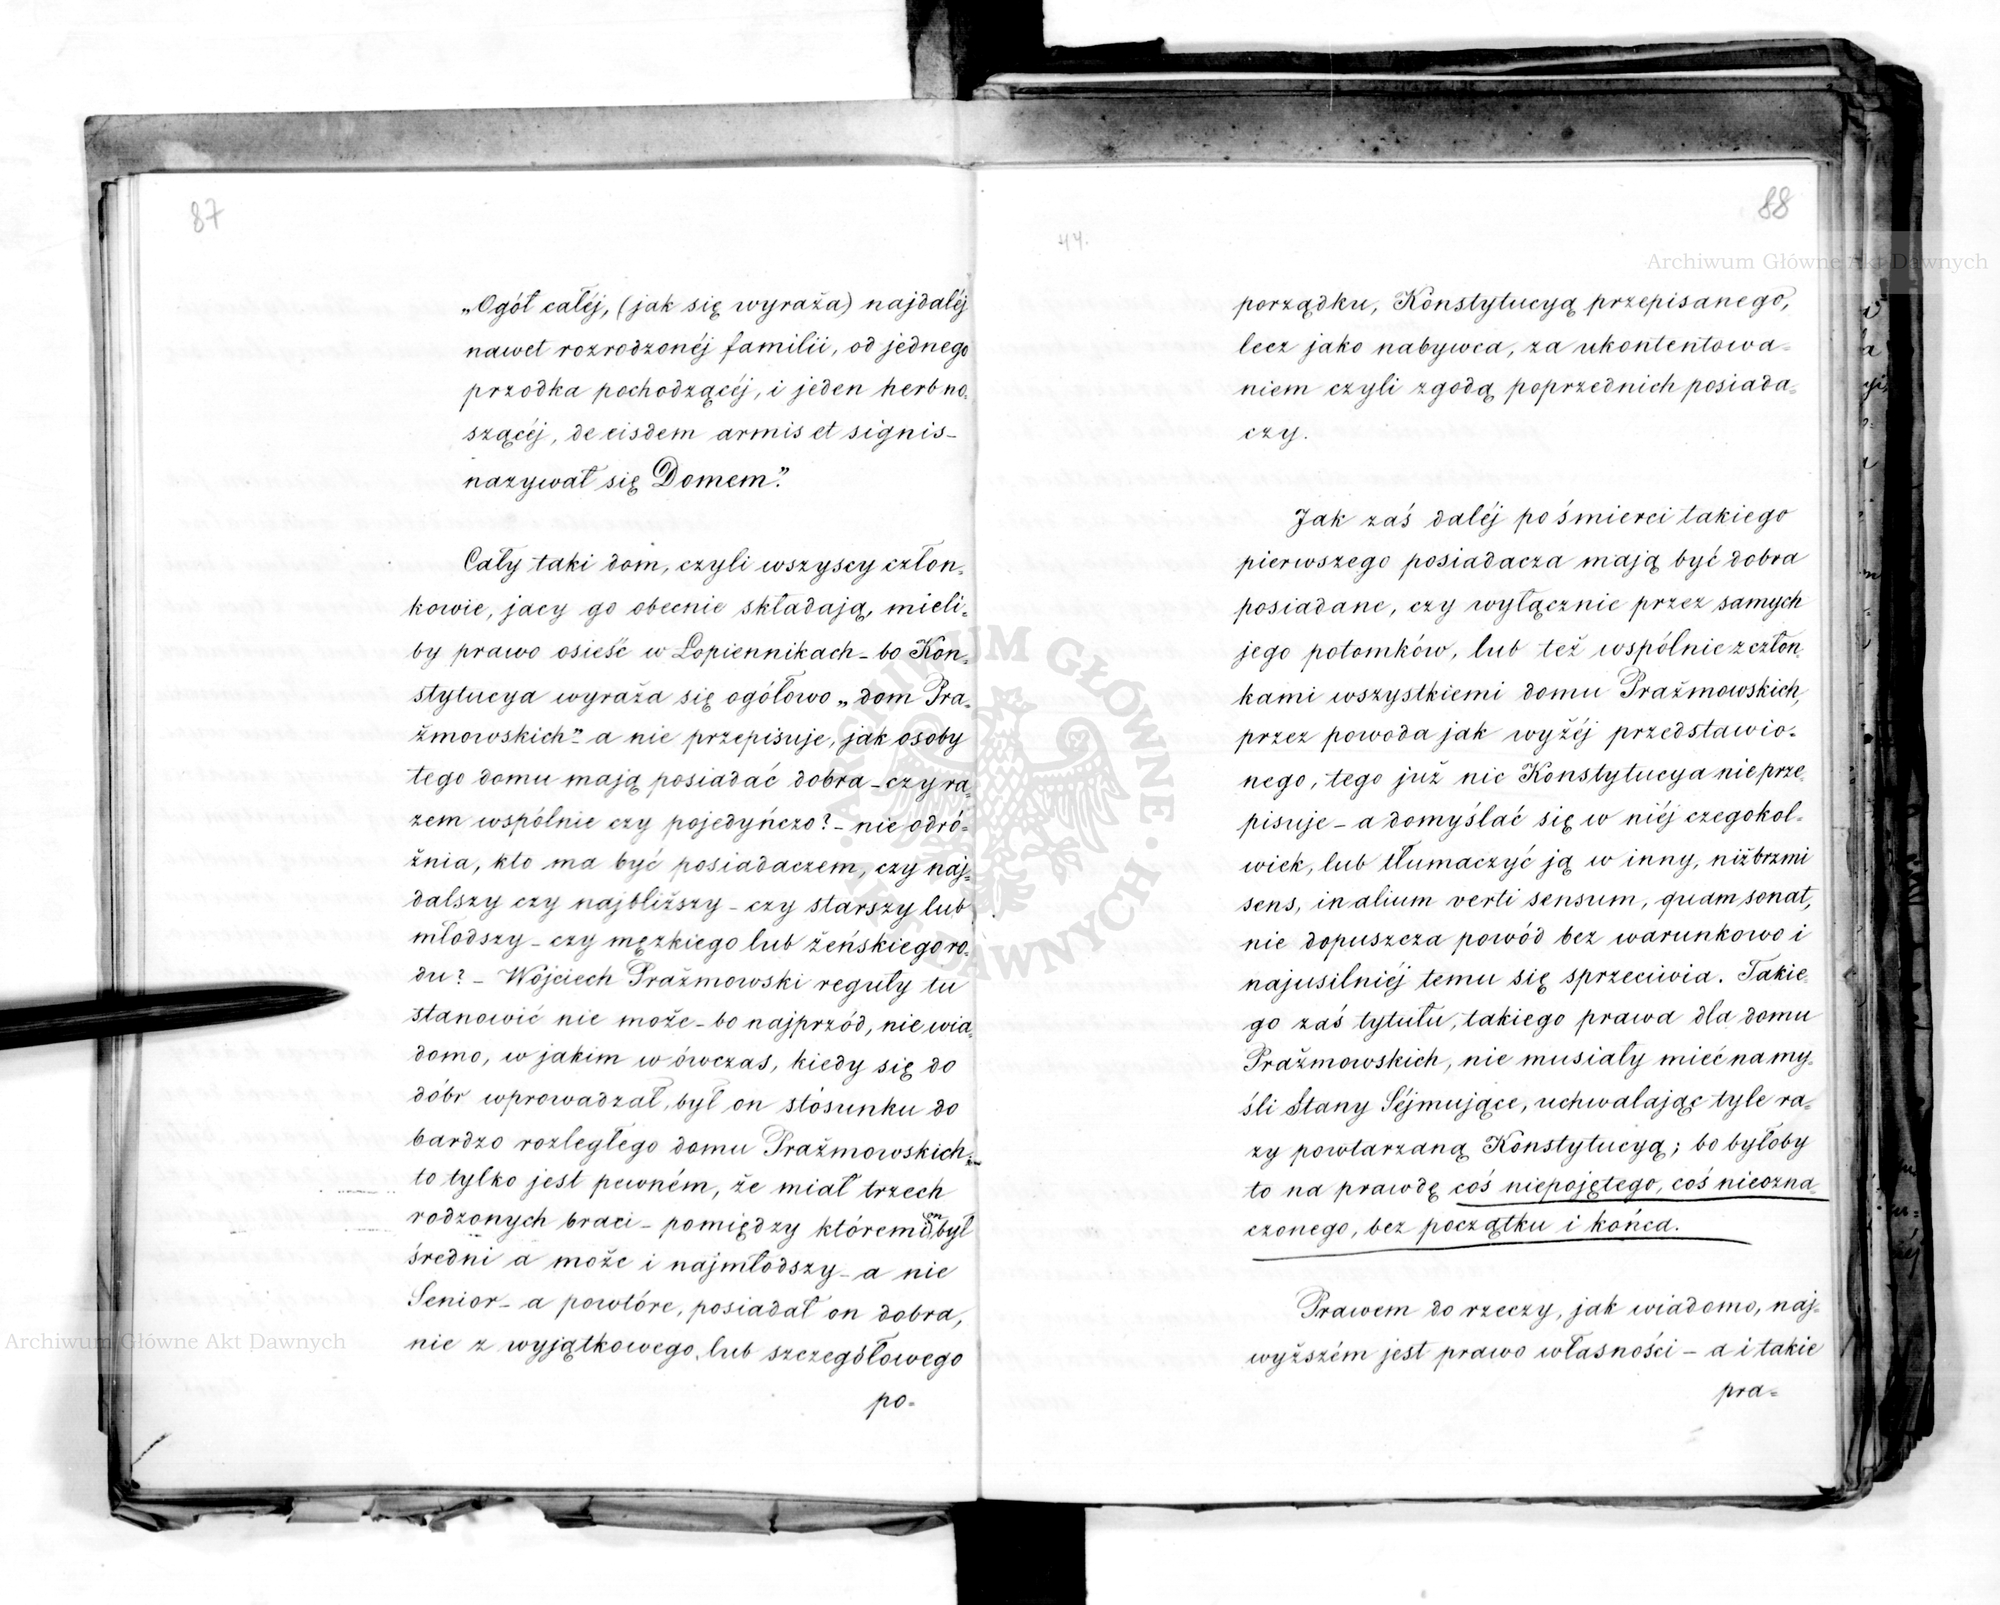 87
„Ogół całéj, (jak się wyraża) najdaléj
nawet rozrodzonéj familii, od jednego
przodka pochodzącéj, i jeden herb no-
szącéj, de eisdem armis et signis -
nazywał się Domem."
Cały taki dom, czyli wszyscy człon-
kowie, jacy go obecnie składają, mieli-
by prawo osieść w Łopiennikach - bo Kon-
stytucya wyraża się ogółowo „dom Pra-
żmowskich" - a nie przepisuje, jak osoby
tego domu mają posiadać dobra - czy ra-
zem wspólnie czy pojedyńczo? - nie odró-
żnia, kto ma być posiadaczem, czy naj-
dalszy czy najbliższy - czy starszy lub
młodszy - czy męzkiego lub żeńskiego ro-
du? - Wojciech Prażmowski reguły tu
stanowić nie może - bo najprzód, nie wia-
domo, w jakim w ówczas, kiedy się do
dóbr wprowadzał, był on stósunku do
bardzo rozległego domu Prażmowskich -
to tylko jest pewném, że miał trzech
rodzonych braci - pomiędzy któremi on był
średni a może i najmłodszy - a nie
Senior - a powtóre, posiadał on dobra,
nie z wyjątkowego, lub szczegółowego
po-
88
44.
porządku, Konstytucyą przepisanego,
lecz jako nabywca, za ukontentowa-
niem czyli zgodą poprzednich posiada-
czy.
Jak zaś daléj po śmierci takiego
pierwszego posiadacza mają być dobra
posiadane, czy wyłącznie przez samych
jego potomków, lub też wspólnie z człon-
kami wszystkiemi domu Prażmowskich,
przez powoda jak wyżéj przedstawio-
nego, tego już nic Konstytucya nie prze-
pisuje - a domyślać się w niéj czegokol-
wiek, lub tłumaczyć ją w inny, niż brzmi
sens, in alium verti sensum, quam sonat,
nie dopuszcza powód bez warunkowo i
najusilniéj temu się sprzeciwia. Takie-
go zaś tytułu, takiego prawa dla domu
Prażmowskich, nie musiały mieć na my-
śli Stany Séjmujące, uchwalając tyle ra-
zy powtarzaną Konstytucyą; bo byłoby
to na prawdę coś niepojętego, coś nieozna-
czonego, bez początku i końca.
Prawem do rzeczy, jak wiadomo, naj-
wyższém jest prawo własności - a i takie
pra-
Archiwum Główne Akt Dawnych
Archiwum Główne Akt Dawnych
ARCHIWUM GŁÓWNE AKT DAWNYCH